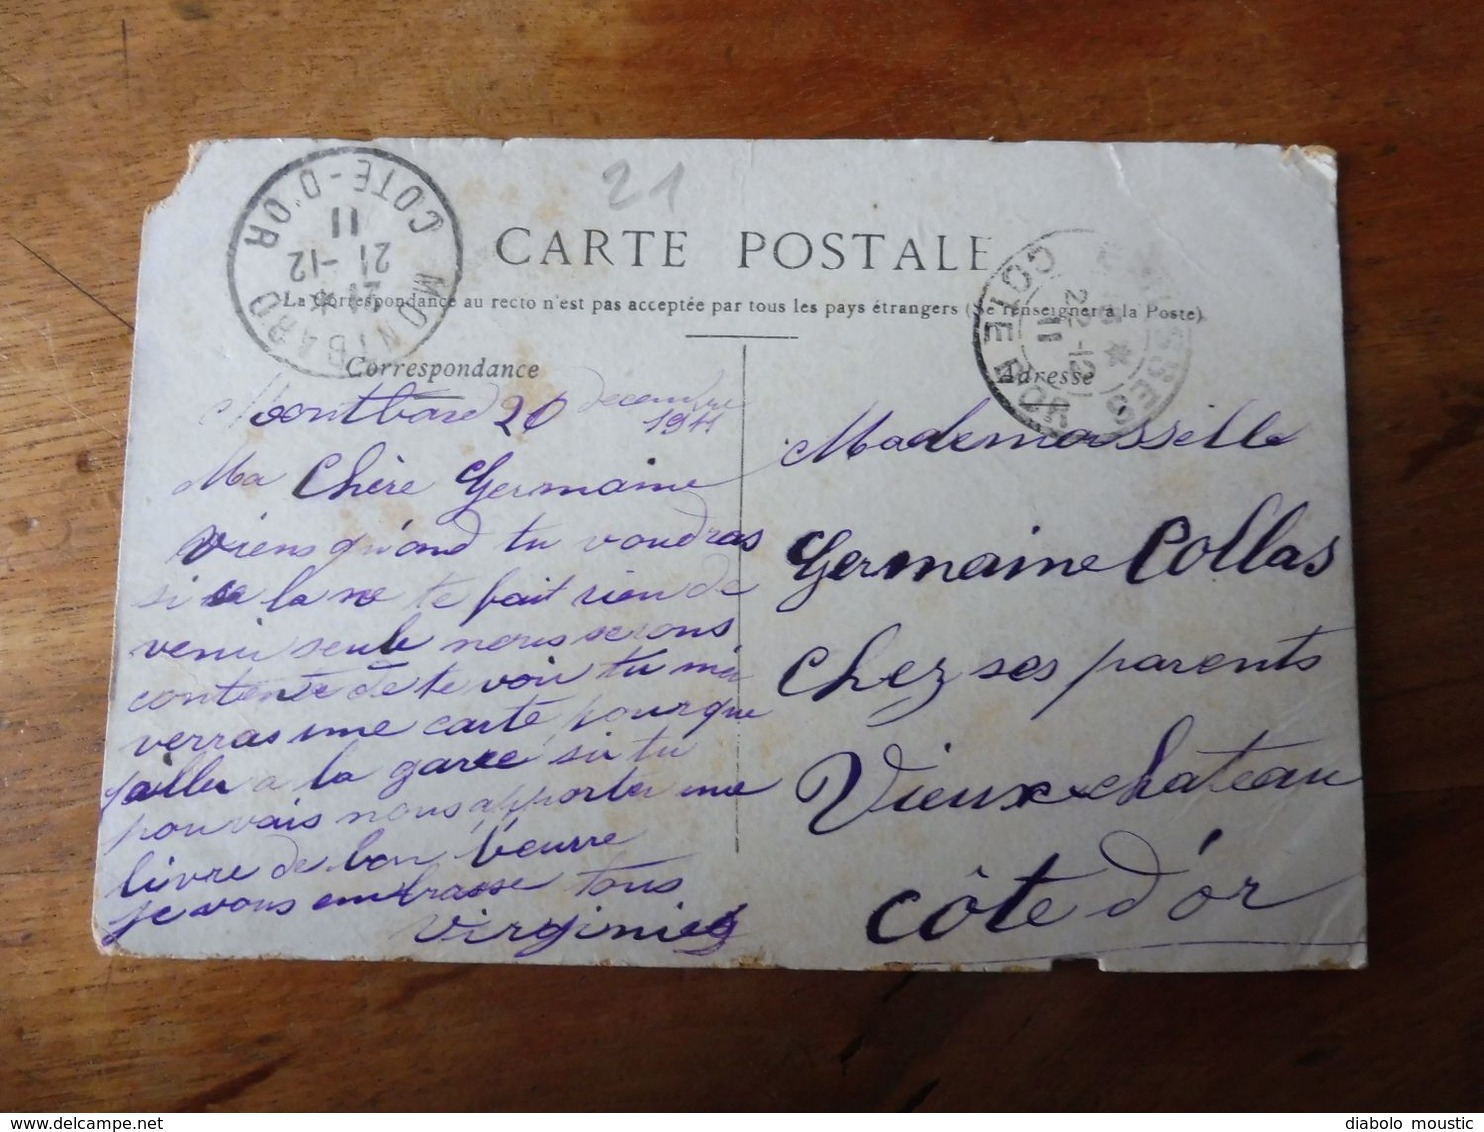 21
CARTE POSTALE
La Correspondance au recto n'est pas acceptée par tous les pays étrangers (Se renseigner à la Poste)
MONTBARD
COTE-D'OR
21-12
11
COTE D'OR
22-12
11
Correspondance
Montbard 20 decembre
1911
Ma Chère Germaine
viens quand tu voudras
si la ne te fait rien de
venir seule nous serons
contente de te voir tu m'en
verras une carte pour que
j'aille a la gare si tu
pouvais nous apporter une
livre de bon beurre
je vous embrasse tous
Virginie
Adresse
Mademoisselle
Germaine Collas
Chez ses parents
Vieux-chateau
Côte d'or
diabolo moustic